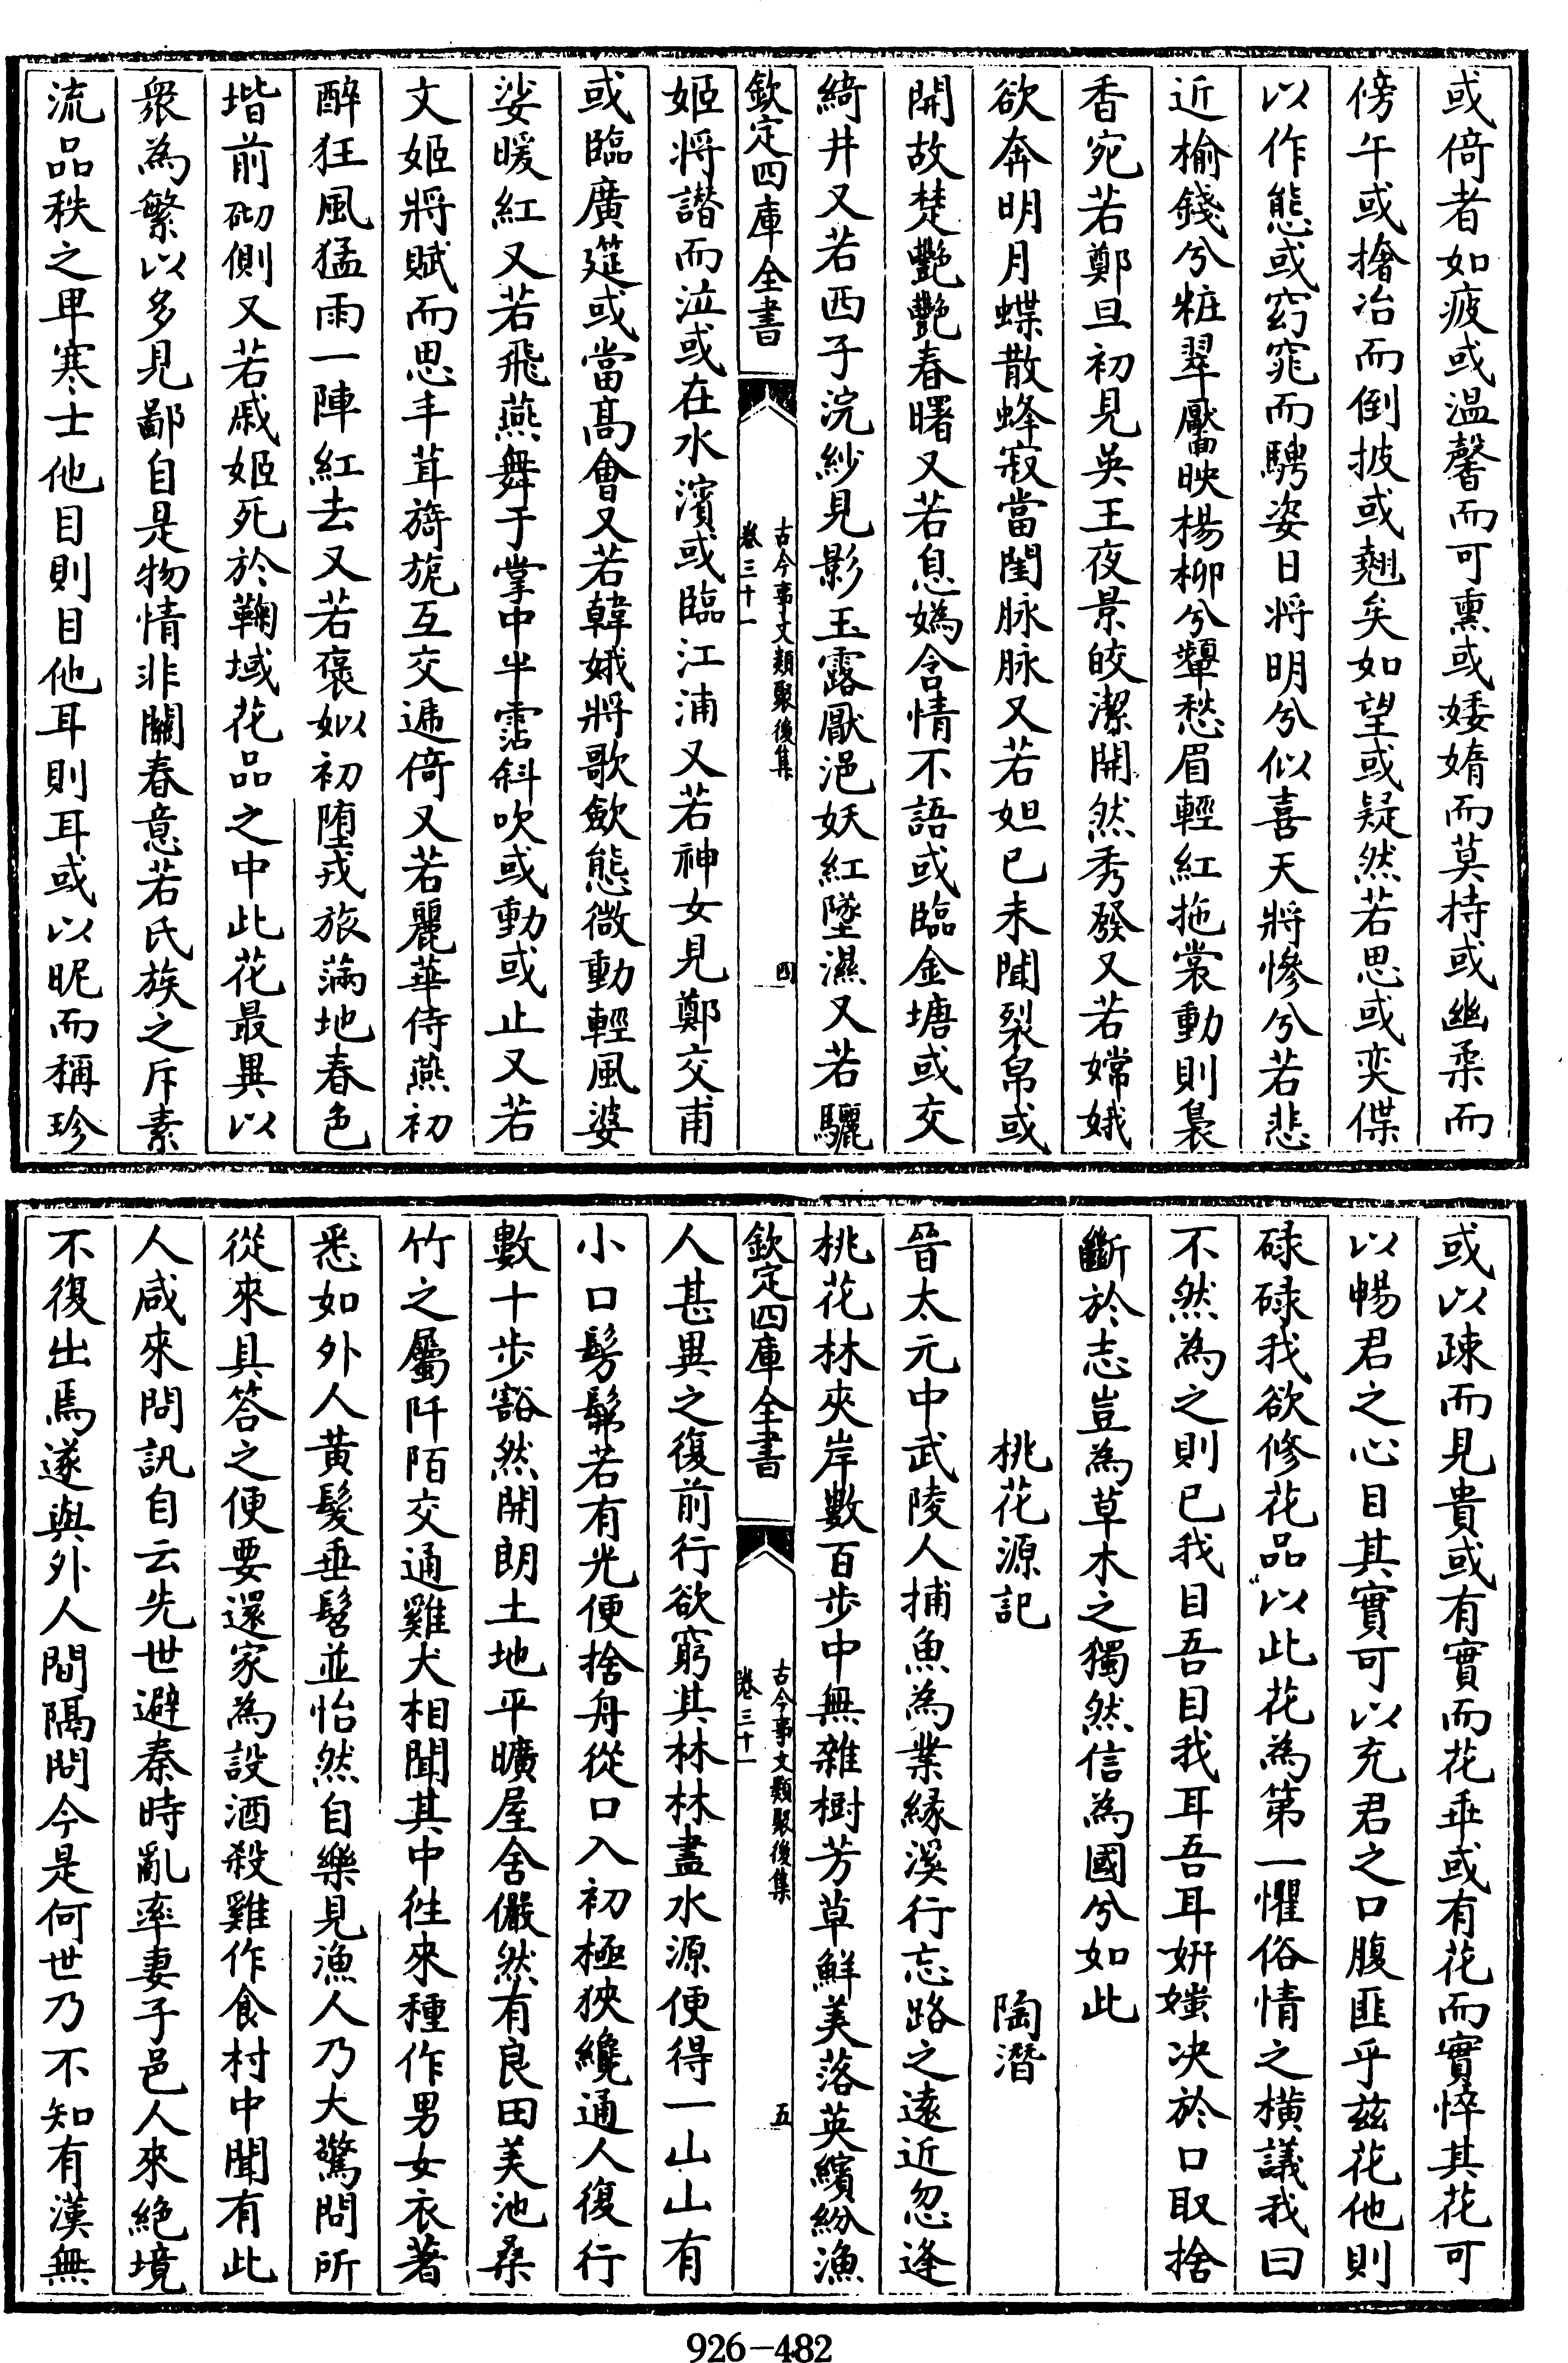 或倚者如疲或温馨而可熏或婑媠而莫持或幽柔而
傍午或撦冶而倒披或翹矣如望或疑然若思或奕偞
以作態或窈窕而騁姿日將明兮似喜天將慘兮若悲
近榆錢兮粧翠靨映楊柳兮顰愁眉輕紅拖裳動則裊
香宛若鄭旦初見吳王夜景皎潔開然秀發又若嫦娥
欲奔明月蝶散蜂寂當閨脉脉又若妲已未聞裂帛或
開故楚艷艷春曙又若息媯含情不語或臨金塘或交
綺井又若西子浣紗見影玉露厭浥妖紅墜濕又若驪
欽定四庫全書
古今事文類聚後集
卷三十一
四
姬將譖而泣或在水濱或臨江浦又若神女見鄭交甫
或臨廣筵或當高會又若韓娥將歌斂態微動輕風婆
娑暖紅又若飛燕舞于掌中半霑斜吹或動或止又若
文姬將賦而思丰茸旖旎互交遞倚又若麗華侍燕初
醉狂風猛雨一陣紅去又若褒姒初堕戎旅滿地春色
堦前砌側又若戚姬死於鞠域花品之中此花最異以
衆為繁以多見鄙自是物情非關春意若氏族之斥素
流品秩之卑寒士他目則目他耳則耳或以昵而稱珍
或以疎而見貴或有實而花乖或有花而實悴其花可
以暢君之心目其實可以充君之口腹匪乎茲花他則
碌碌我欲修花品以此花為第一懼俗情之横議我曰
不然為之則已我目吾目我耳吾耳妍媸决於口取捨
斷於志豈為草木之獨然信為國兮如此
桃花源記 陶潛
晉太元中武陵人捕魚為業緣溪行忘路之遠近忽逢
桃花林夾岸數百步中無雜樹芳草鮮美落英繽紛漁
欽定四庫全書
古今事文類聚後集
卷三十一
五
人甚異之復前行欲窮其林林盡水源便得一山山有
小口髣髴若有光便捨舟從口入初極狹纔通人復行
數十步豁然開朗土地平曠屋舍儼然有良田美池桑
竹之屬阡陌交通雞犬相聞其中徃來種作男女衣著
悉如外人黄髮垂髫並怡然自樂見漁人乃大驚問所
從來具答之便要還家為設酒殺雞作食村中聞有此
人咸來問訊自云先世避秦時亂率妻子邑人來絶境
不復出焉遂與外人間隔問今是何世乃不知有漢無
926-482